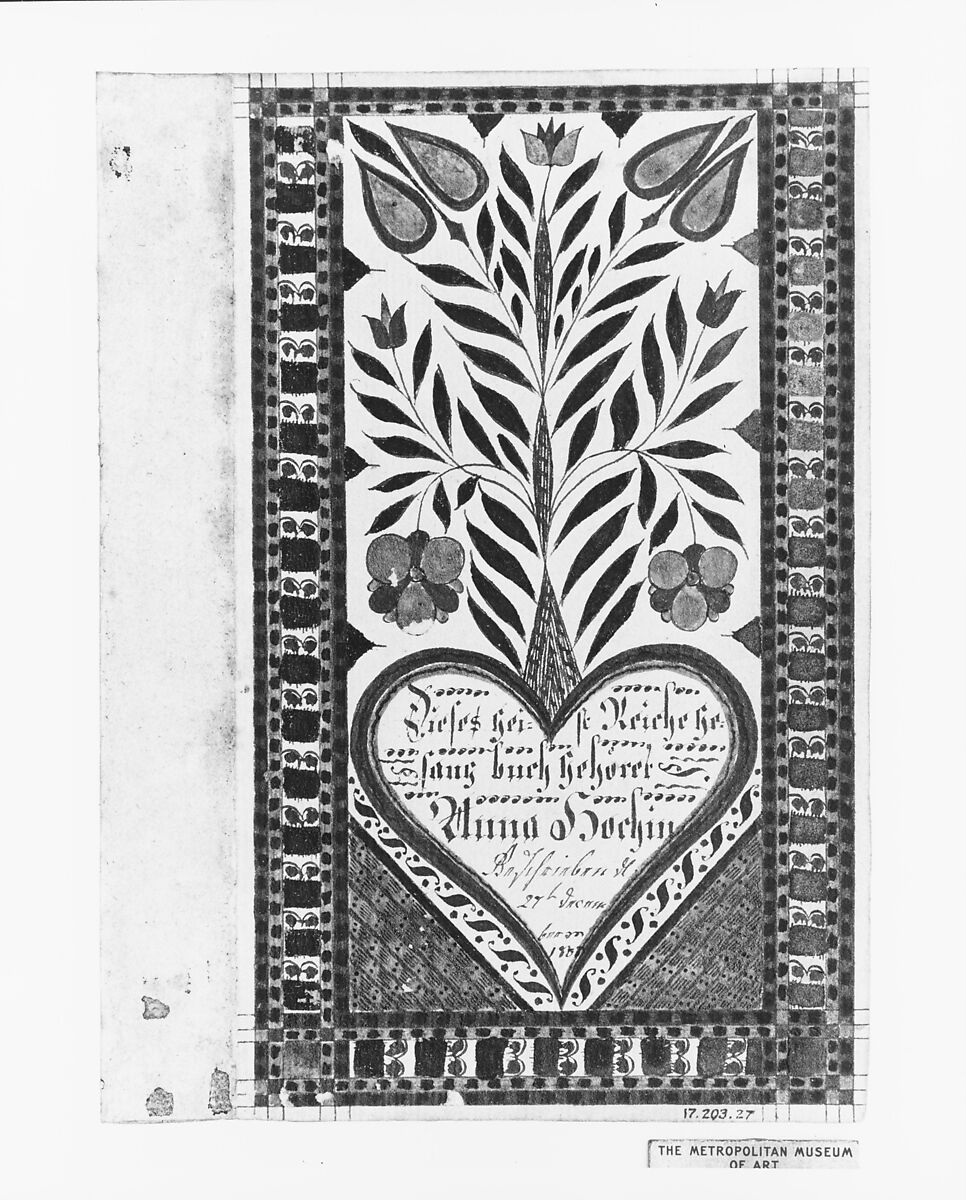 Dieses hei= st Reiche Ge=
sang buch Gehöret
Anna Hochin
Beschrieben d
27t decem
ber
17.203.27
THE METROPOLITAN MUSEUM
OF ART